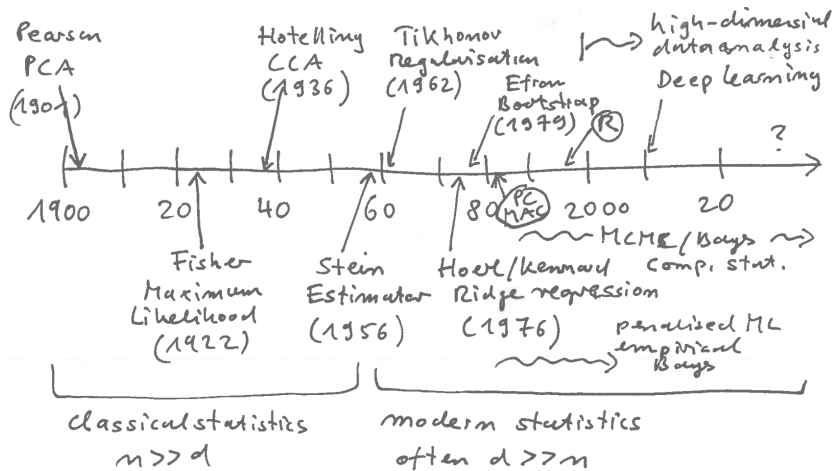 Pearson
PCA
(1901)
Hotelling
CCA
(1936)
Tikhonov
Regularisation
(1962)
Efron
Bootstrap
(1979)
R
high-dimensial
data analysis
Deep Learning
?
1900
20
40
60
80
PC
MAC
2000
20
Fisher
Maximum
Likelihood
(1922)
Stein
Estimator
(1956)
Hoerl/Kennard
Ridge regression
(1976)
MCMC/Bays
Comp. stat.
penalised ML
empirical
Bays
classical statistics
n>>d
modern statistics
often d>>n